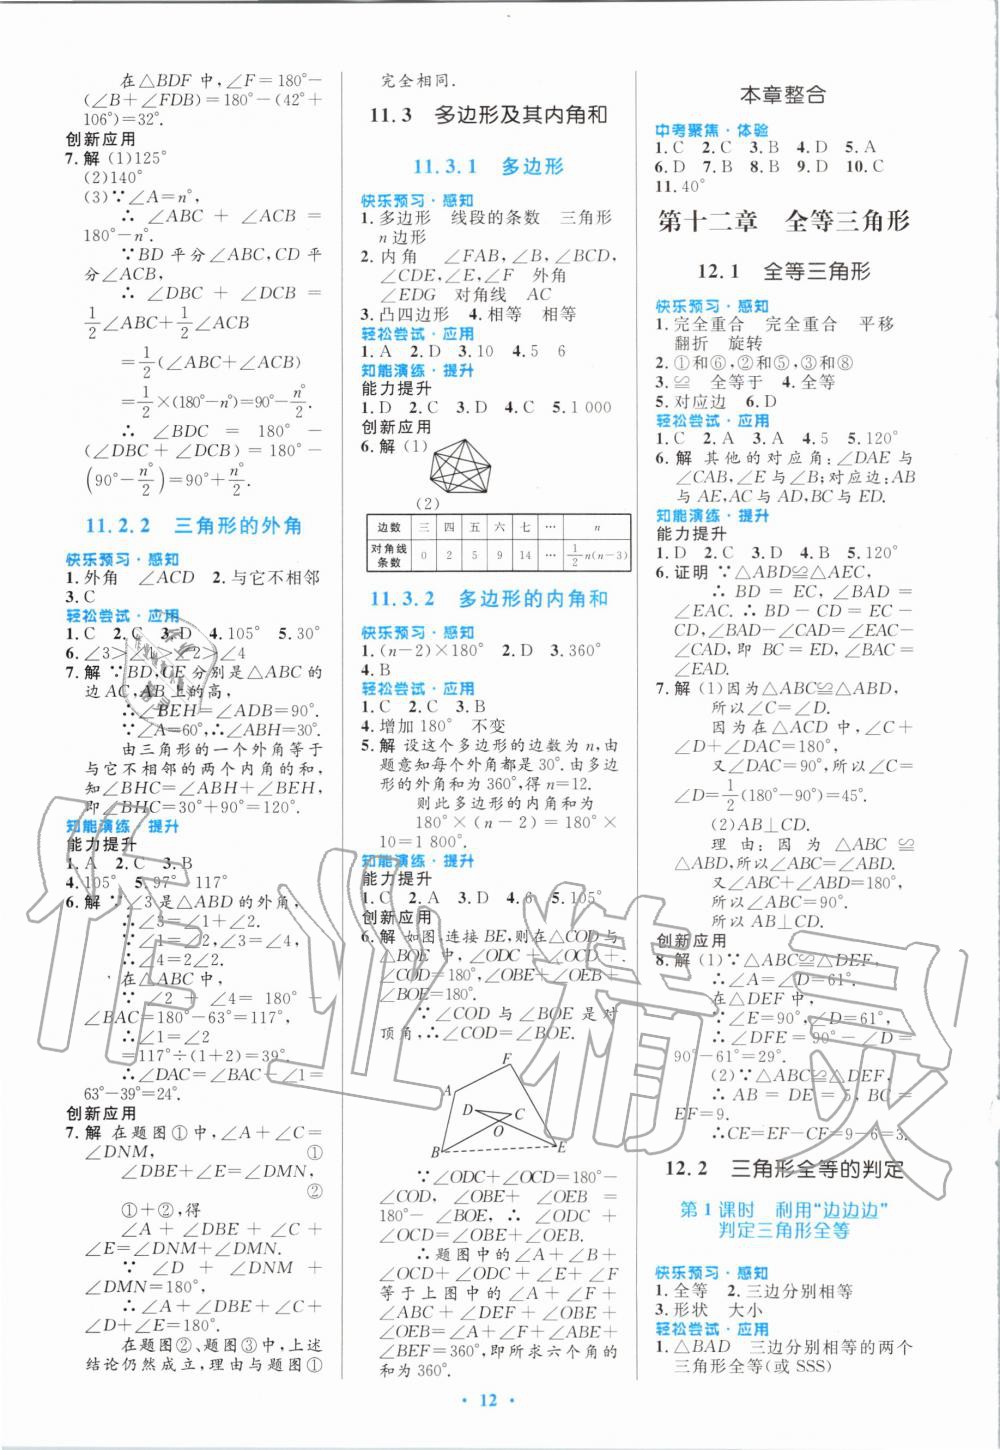 在△BDF 中,∠F=180°-
(∠B+∠FDB)=180°-(42°+
106°)=32°.
创新应用
7.解 (1)125°
(2)140°
(3)∵∠A=n°,
∴ ∠ABC + ∠ACB =
180°-n°.
∵BD 平分∠ABC,CD 平
分∠ACB,
∴ ∠DBC + ∠DCB =
1/2∠ABC+1/2∠ACB
=1/2(∠ABC+∠ACB)
=1/2×(180°-n°)=90°-n°/2.
∴ ∠BDC = 180° -
(∠DBC+∠DCB)=180°-
(90°-n°/2)=90°+n°/2.
11.2.2 三角形的外角
快乐预习·感知
1.外角 ∠ACD 2.与它不相邻
3.C
轻松尝试·应用
1.C 2.C 3.D 4.105° 5.30°
6.∠3>∠1>∠2>∠4
7.解 ∵BD,CE 分别是△ABC 的
边 AC,AB 上的高,
∴∠BEH=∠ADB=90°.
∵∠A=60°,∴∠ABH=30°.
由三角形的一个外角等于
与它不相邻的两个内角的和,
知∠BHC=∠ABH+∠BEH,
即∠BHC=30°+90°=120°.
知能演练·提升
能力提升
1.A 2.C 3.B
4.105° 5.97° 117°
6.解 ∵∠3是△ABD 的外角,
∴∠3=∠1+∠2.
∵∠1=∠2,∠3=∠4,
∴∠4=2∠2.
在△ABC中,
∵ ∠2 + ∠4 = 180° -
∠BAC=180°-63°=117°,
∴∠1=∠2
=117°÷(1+2)=39°.
∴∠DAC=∠BAC-∠1=
63°-39°=24°.
创新应用
7.解 在题图①中,∠A+∠C=
∠DNM, ①
∠DBE+∠E=∠DMN,
②
①+②,得
∠A + ∠DBE + ∠C +
∠E=∠DNM+∠DMN.
∵ ∠D + ∠DMN +
∠DNM=180°,
∴∠A+∠DBE+∠C+
∠D+∠E=180°.
在题图②、题图③中,上述
结论仍然成立,理由与题图①
完全相同.
11.3 多边形及其内角和
11.3.1 多边形
快乐预习·感知
1.多边形 线段的条数 三角形
n 边形
2.内角 ∠FAB,∠B,∠BCD,
∠CDE,∠E,∠F 外角
∠EDG 对角线 AC
3.凸四边形 4.相等 相等
轻松尝试·应用
1.A 2.D 3.10 4.5 6
知能演练·提升
能力提升
1.D 2.C 3.D 4.C 5.1 000
创新应用
6.解 (1)
(2)
边数 三 四 五 六 七 … n
对角线条数 0 2 5 9 14 … 1/2n(n-3)
11.3.2 多边形的内角和
快乐预习·感知
1.(n-2)×180° 2.D 3.360°
4.B
轻松尝试·应用
1.C 2.C 3.B
4.增加 180° 不变
5.解 设这个多边形的边数为 n,由
题意知每个外角都是 30°.由多边
形的外角和为 360°,得 n=12.
则此多边形的内角和为
180°×(n-2)=180°×
10=1 800°.
知能演练·提升
能力提升
1.C 2.A 3.D 4.6 5.105°
创新应用
6.解 如图,连接 BE,则在△COD 与
△BOE 中,∠ODC+∠OCD+
∠COD=180°,∠OBE+∠OEB+
∠BOE=180°.
∵∠COD 与∠BOE 是对
顶角,∴∠COD=∠BOE.
F
A
D
C
O
B
E
∵∠ODC+∠OCD=180°-
∠COD, ∠OBE + ∠OEB =
180°-∠BOE, ∴ ∠ODC +
∠OCD=∠OBE+∠OEB.
∴题图中的∠A+∠B+
∠C+∠D+∠E+∠F
等于上图中的∠A+∠F+
∠ABC+∠DEF+∠OBE+
∠OEB=∠A+∠F+∠ABE+
∠BEF=360°,即所求六个角的
和为 360°.
本章整合
中考聚焦·体验
1.C 2.C 3.B 4.D 5.A
6.D 7.B 8.B 9.D 10.C
11.40°
第十二章 全等三角形
12.1 全等三角形
快乐预习·感知
1.完全重合 完全重合 平移
翻折 旋转
2.①和⑥,②和⑤,③和⑧
3.≌ 全等于 4.全等
5.对应边 6.D
轻松尝试·应用
1.C 2.A 3.A 4.5 5.120°
6.解 其他的对应角:∠DAE 与
∠CAB,∠E 与∠B;对应边:AB
与 AE,AC 与 AD,BC 与 ED.
知能演练·提升
能力提升
1.D 2.C 3.D 4.B 5.120°
6.证明 ∵△ABD≌△AEC,
∴ BD = EC, ∠BAD =
∠EAC. ∴ BD - CD = EC -
CD,∠BAD-∠CAD=∠EAC-
∠CAD,即 BC=ED,∠BAC=
∠EAD.
7.解 (1)因为△ABC≌△ABD,
所以∠C=∠D.
因为在△ACD 中,∠C+
∠D+∠DAC=180°,
又∠DAC=90°,所以∠C=
∠D=1/2(180°-90°)=45°.
(2)AB⊥CD.
理由:因为△ABC≌
△ABD,所以∠BAC=∠BAD.
又∠BAC+∠BAD=180°,
所以∠BAC=90°.
所以 AB⊥CD.
创新应用
8.解 (1)∵△ABC≌△DEF,
∴∠A=∠D=61°.
在△DEF 中,
∵∠E=90°,∠D=61°,
∴∠DFE = 90° - ∠D =
90°-61°=29°.
(2)∵△ABC≌△DEF,
∴ AB = DE = 5, BC =
EF=9.
∴CE=EF-CF=9-6=3.
12.2 三角形全等的判定
第1课时 利用“边边边”
判定三角形全等
快乐预习·感知
1.全等 2.三边分别相等
3.形状 大小
轻松尝试·应用
1.△BAD 三边分别相等的两个
三角形全等(或 SSS)
· 12 ·
作业精灵